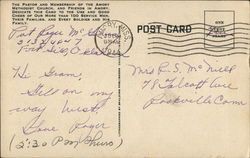 THE PASTOR AND MEMBERSHIP OF THE AMORY
METHODIST CHURCH, AND FRIENDS IN AMORY,
DEDICATE THIS CARD TO THE USE AND GOOD
CHEER OF OUR MORE THAN 100 SERVICE MEN,
THEIR FAMILIES, AND EVERY SOLDIER AND HIS
FAMILY.
POST CARD
Hi Gram,
Still on my
way west
Love Roger
(2:30 P.M. Thurs)
Mrs R. S. Mc Neill
78 Talcott Ave
Rockville Conn